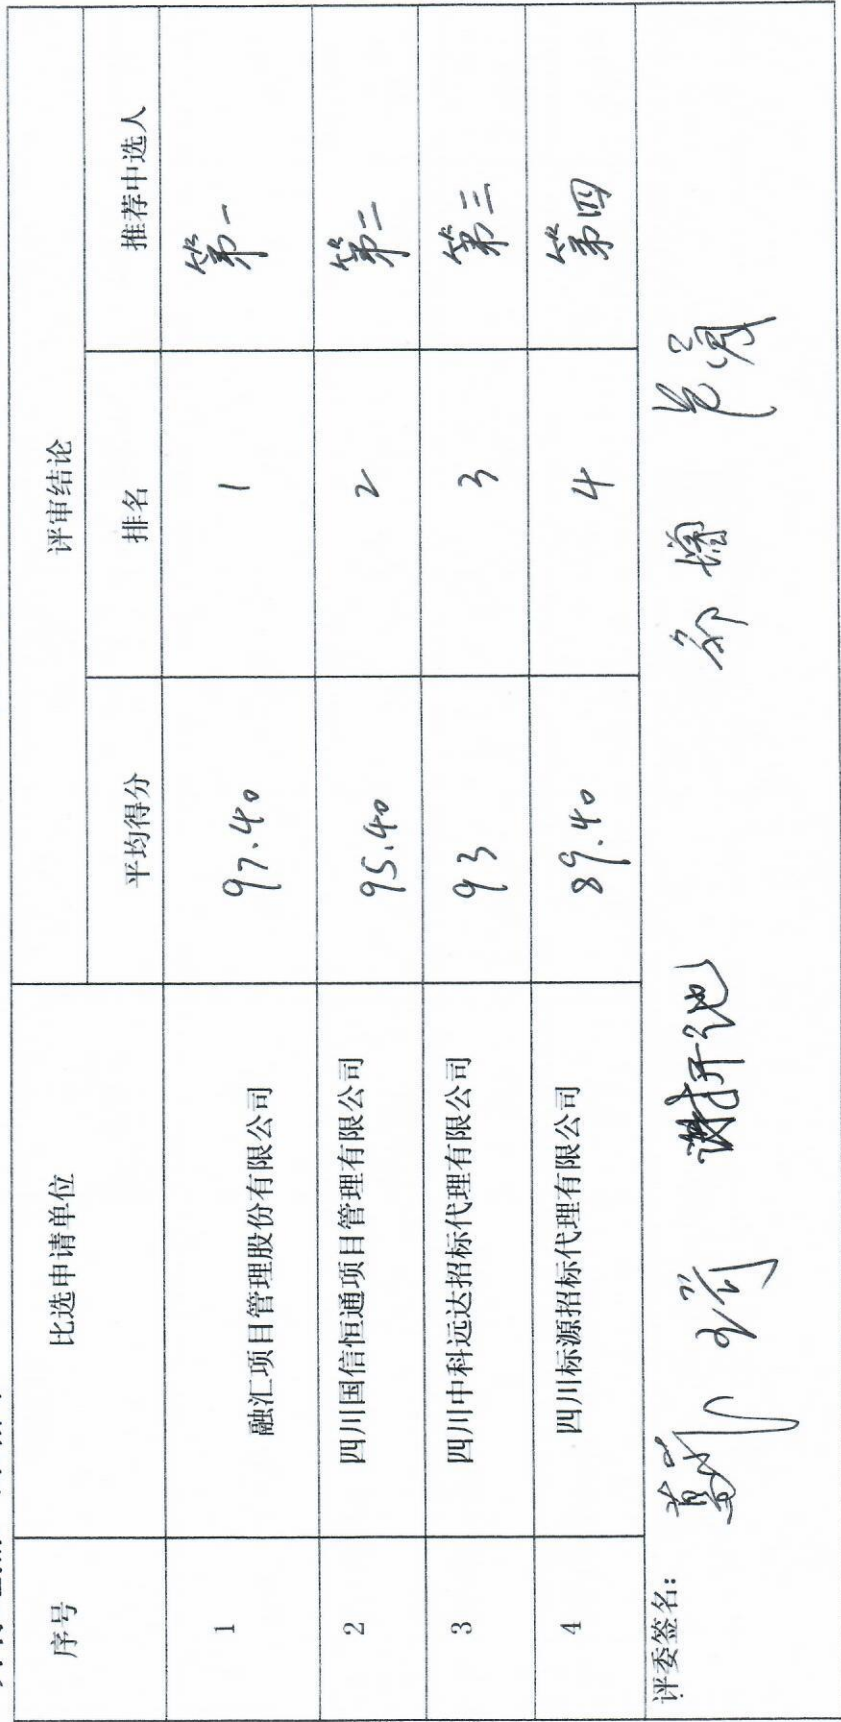 序号 比选申请单位 评审结论
平均得分 排名 推荐中选人
1 融汇项目管理股份有限公司 97.40 1 第一
2 四川国信恒通项目管理有限公司 95.40 2 第二
3 四川中科远达招标代理有限公司 93 3 第三
4 四川标源招标代理有限公司 89.40 4 第四
评委签名: